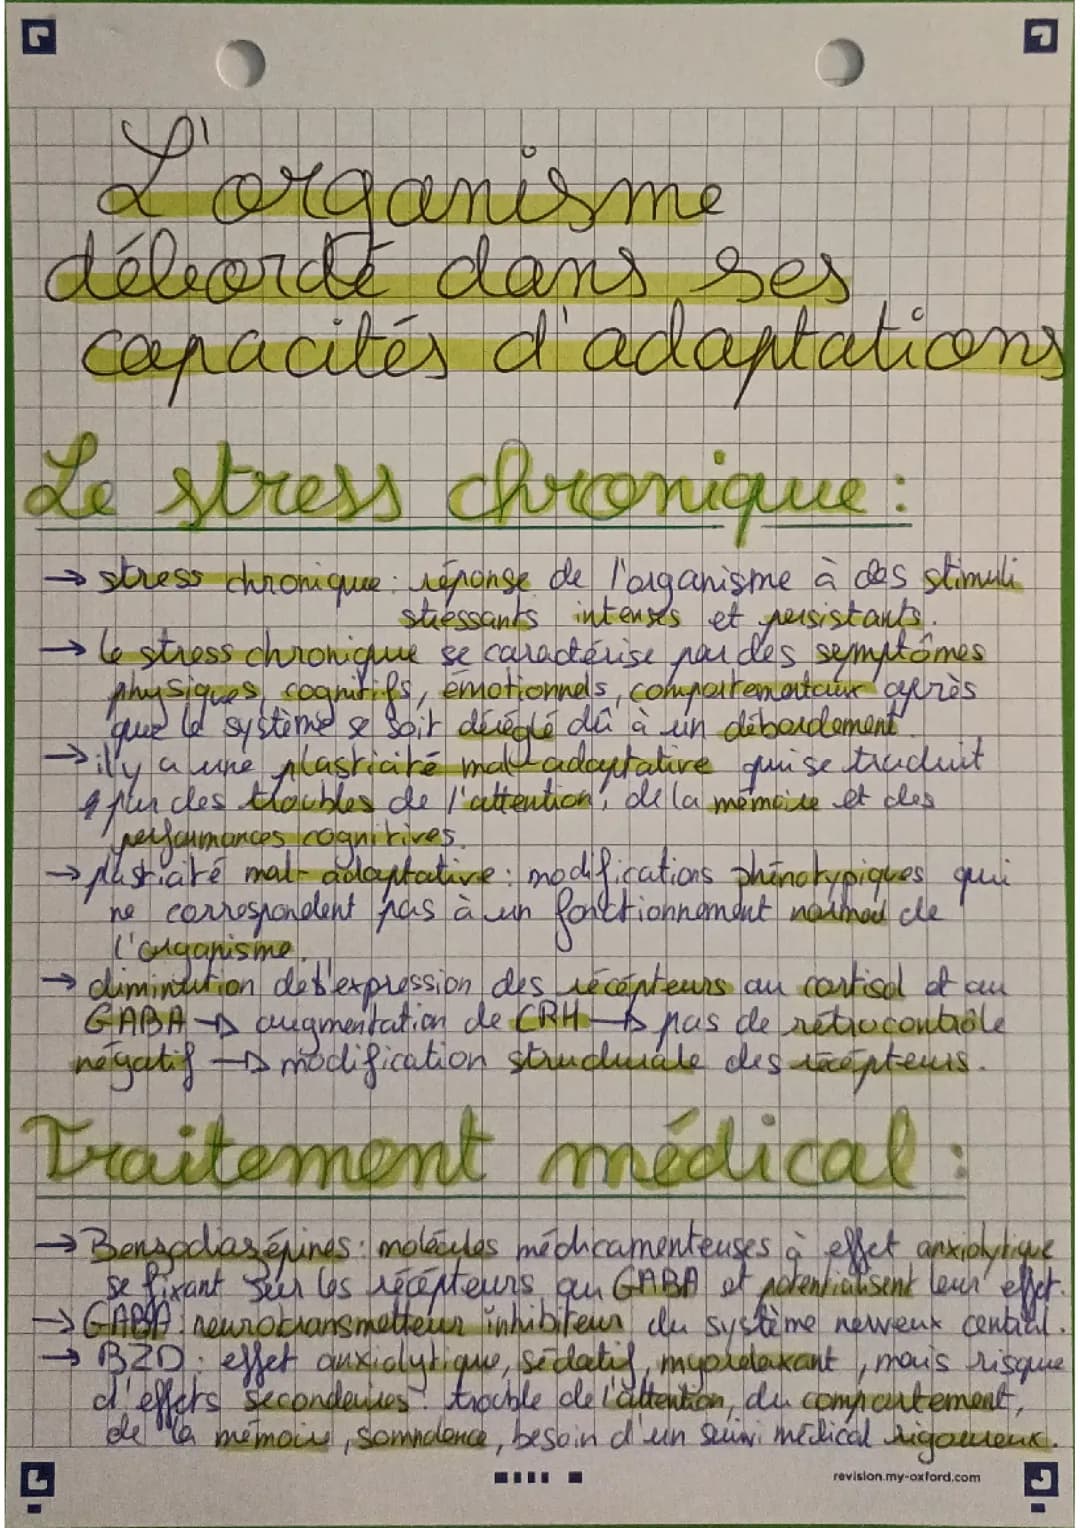 L'organisme
débordé dans ses
capacités d'adaptations
Le stress chronique :
→ stress chronique : réponse de l'organisme à des stimuli
stressants intenses et persistants.
→ le stress chronique se caractérise par des symptômes
physiques, cognitifs, émotionnels, comportementaux après
que le système se soit déréglé dû à un débordement.
→ il y a une plasticité mal-adaptative qui se traduit
par des troubles de l'attention, de la mémoire et des
performances cognitives.
→ plasticité mal-adaptative : modifications phénotypiques qui
ne correspondent pas à un fonctionnement normal de
l'organisme.
→ diminution de l'expression des récépteurs au cortisol et au
GABA → augmentation de CRH → pas de rétrocontrôle
négatif → modification structurale des récépteurs.
Traitement médical :
→ Benzodiazépines : molécules médicamenteuses à effet anxiolytique
se fixant sur les récépteurs au GABA et potentialisent leur effet.
→ GABA : neurotransmetteur inhibiteur du système nerveux central.
→ BZD : effet anxiolytique, sédatif, myorelaxant, mais risque
d'effets secondaires : trouble de l'attention, du comportement,
de la mémoire, somnolence, besoin d'un suivi médical rigoureux.
revision.my-oxford.com